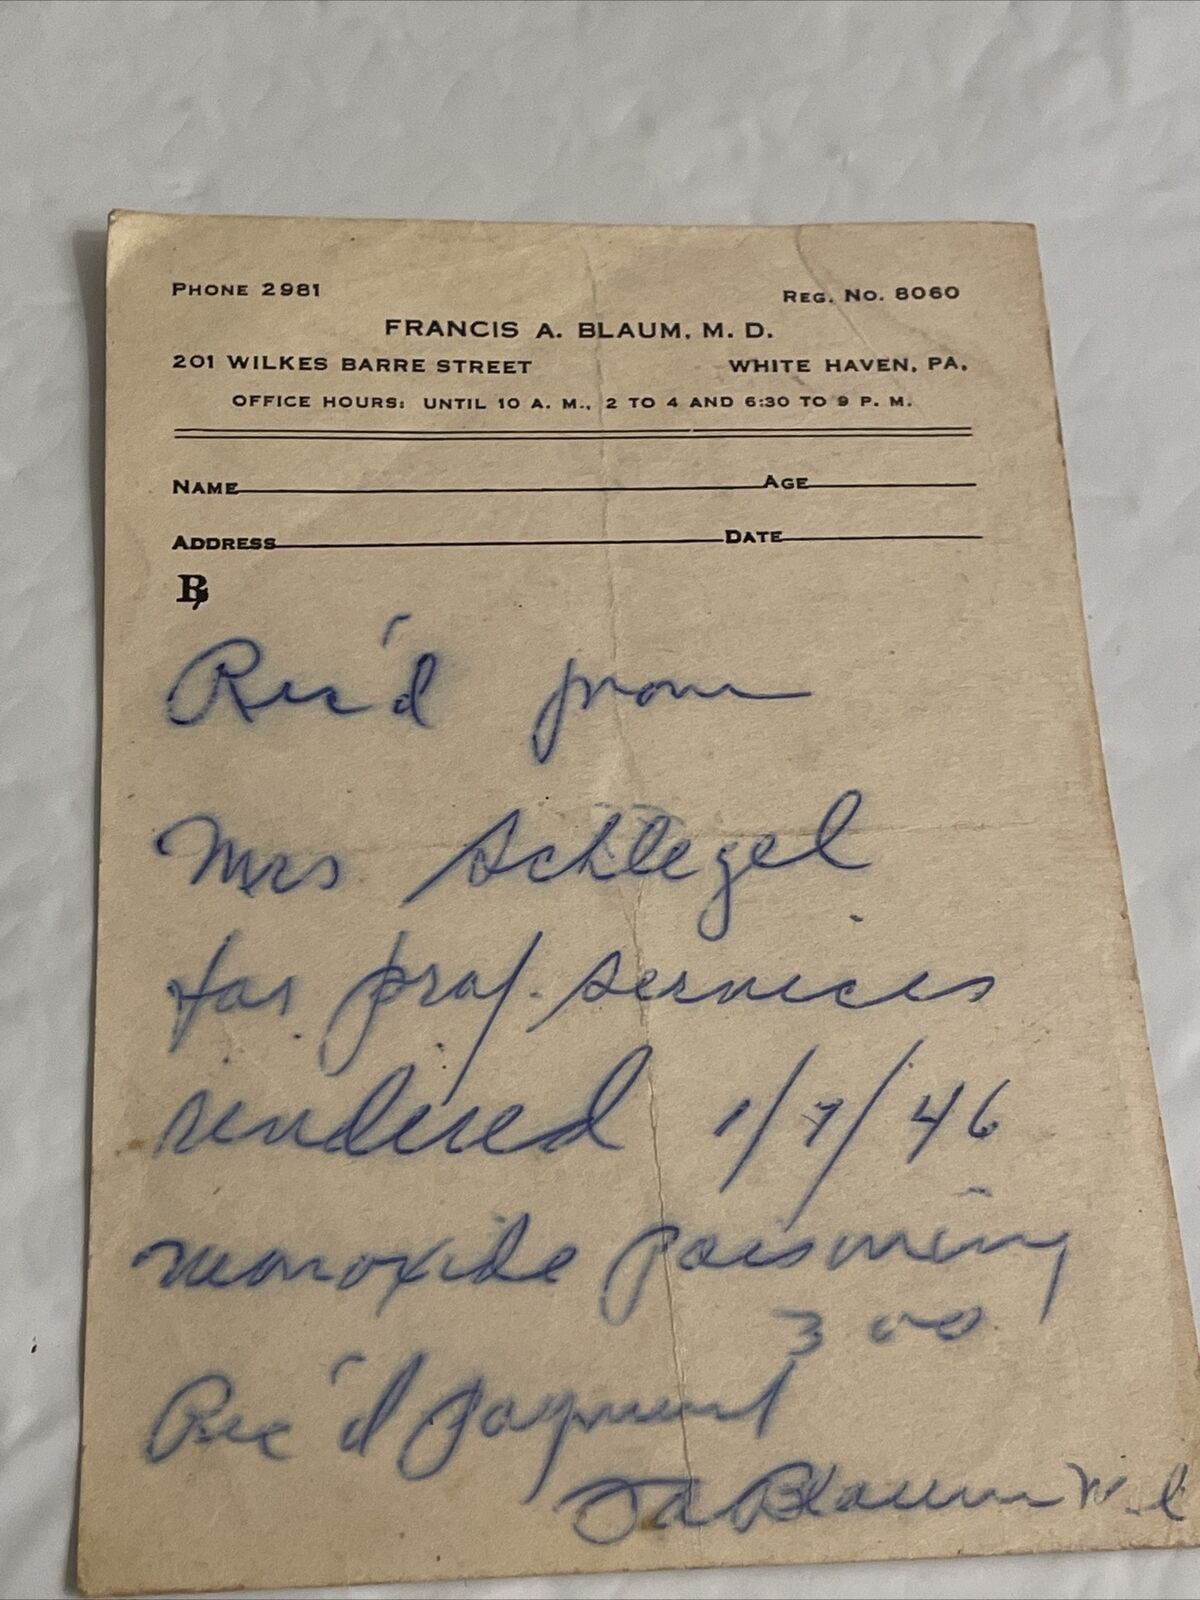 PHONE 2981 REG. NO. 8060
FRANCIS A. BLAUM, M. D.
201 WILKES BARRE STREET WHITE HAVEN, PA.
OFFICE HOURS: UNTIL 10 A. M., 2 TO 4 AND 6:30 TO 9 P. M.
NAME AGE
ADDRESS DATE
℞
Rec'd from
Mrs Schlegel
for prof. services
rendered 1/7/46
monoxide poisoning
3 00
Rec'd payment
FA Blaum M.D